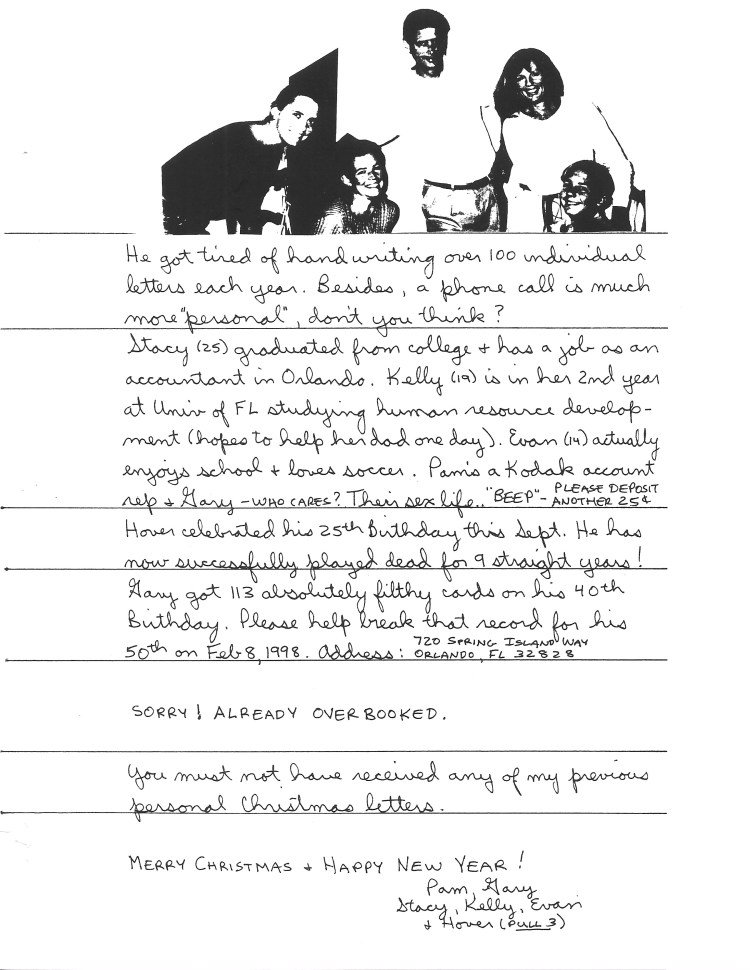 He got tired of handwriting over 100 individual
letters each year. Besides, a phone call is much
more "personal", don't you think?
Stacy (25) graduated from college + has a job as an
accountant in Orlando. Kelly (19) is in her 2nd year
at Univ of FL studying human resource develop-
ment (hopes to help her dad one day). Evan (14) actually
enjoys school + loves soccer. Pam's a Kodak account
rep + Gary - WHO CARES? Their sex life.. "BEEP" - PLEASE DEPOSIT
ANOTHER 25¢
Hover celebrated his 25th Birthday this Sept. He has
now successfully played dead for 9 straight years!
Gary got 113 absolutely filthy cards on his 40th
Birthday. Please help break that record for his
50th on Feb 8, 1998. Address: 720 SPRING ISLAND WAY
ORLANDO, FL 32828
SORRY! ALREADY OVERBOOKED.
You must not have received any of my previous
personal Christmas letters.
MERRY CHRISTMAS + HAPPY NEW YEAR!
Pam, Gary
Stacy, Kelly, Evan
+ Hover (PULL 3)